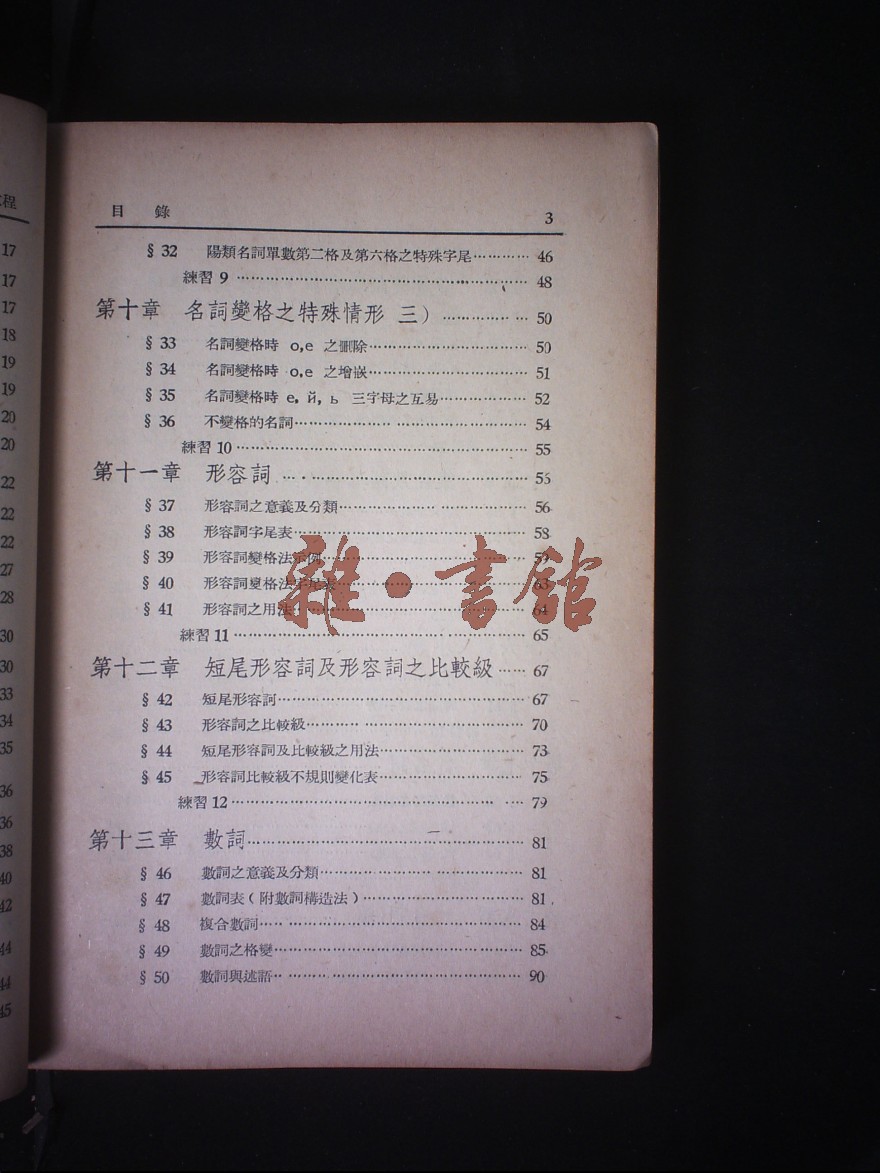 目 錄 3
§ 32 陽類名詞單數第二格及第六格之特殊字尾………… 46
練習 9 ………………………………………………… 48
第十章 名詞變格之特殊情形 三） ………………… 50
§ 33 名詞變格時 o,e 之刪除………………………… 50
§ 34 名詞變格時 o,e 之增嵌………………………… 51
§ 35 名詞變格時 e, й, ь 三字母之互易……………… 52
§ 36 不變格的名詞…………………………………… 54
練習 10 ………………………………………………… 55
第十一章 形容詞 ……………………………………… 56
§ 37 形容詞之意義及分類…………………………… 56
§ 38 形容詞字尾表…………………………………… 58
§ 39 形容詞變格法示例……………………………… 59
§ 40 形容詞變格法字尾表…………………………… 63
§ 41 形容詞之用法…………………………………… 64
練習 11 ………………………………………………… 65
第十二章 短尾形容詞及形容詞之比較級 …… 67
§ 42 短尾形容詞……………………………………… 67
§ 43 形容詞之比較級………………………………… 70
§ 44 短尾形容詞及比較級之用法…………………… 73
§ 45 形容詞比較級不規則變化表…………………… 75
練習 12 ………………………………………………… 79
第十三章 數詞 ………………………………………… 81
§ 46 數詞之意義及分類……………………………… 81
§ 47 數詞表（附數詞構造法）……………………… 81
§ 48 複合數詞………………………………………… 84
§ 49 數詞之格變……………………………………… 85
§ 50 數詞與述語……………………………………… 90
雜·書館
程
17
17
17
18
19
19
20
20
22
22
22
27
28
30
30
33
34
35
36
36
38
40
42
44
44
45